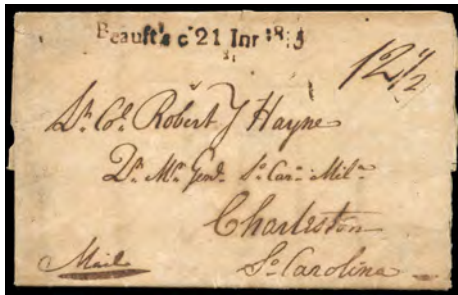 Beauft's c 21 Inr 18:5
12 1/2
Lt. Col. Robert Y Hayne
Dr. Mr. Genl. So. Car. Mila.
Charleston
Mail
So. Carolina